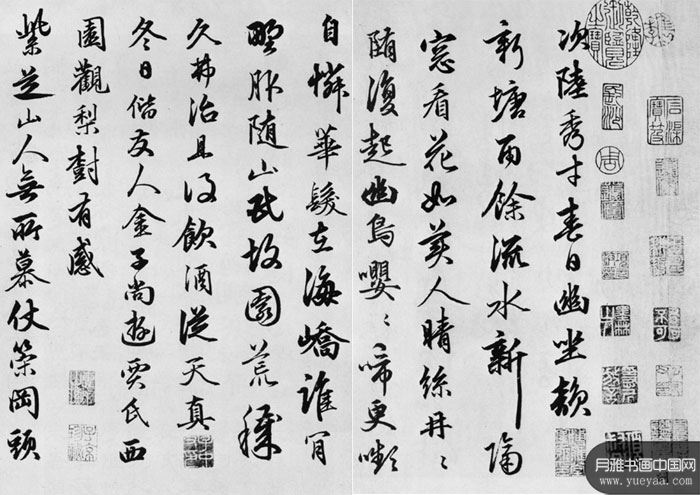 次陸秀才春日幽坐韻
新塘雨餘流水新隔
窓看花如美人晴絲冉〻
随復起幽鳥嚶〻啼更嚬
自憐華髮在海嶠誰肯
野服随山民故園荒穢
久弗治且須飲酒從天真
冬日偕友人金子尚遊賈氏西
園觀梨樹有感
紫芝山人無所慕仗策岡頭
月雅书画中国网
www.yueyaa.com